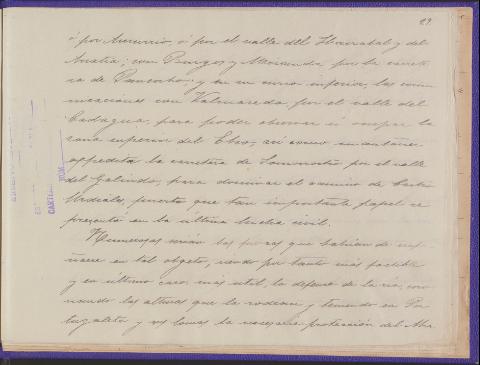 29
ó por Amurrio, ó por el valle del Ibaizabal y del
Arratia; con Burgos y Miranda por la carrete-
ra de Pancorbo; y en su curso inferior, las comu-
nicaciones con Valmaseda, por el valle del
Cadagua, para poder abocar ú ocupar la
zona superior del Ebro, así como
la carretera de Somorrostro por el valle
del Galindo, para dominar el camino de Castro
Urdiales, puerto que tan importante papel re-
presentó en la última lucha civil.
Numerosas serían las pozas que habían de
en tal objeto, siendo por tanto más factible
y en último caso más útil, la defensa de la ria,
las alturas que la rodean y teniendo en Por-
tugalete y sus lomas la necesaria protección del Aba